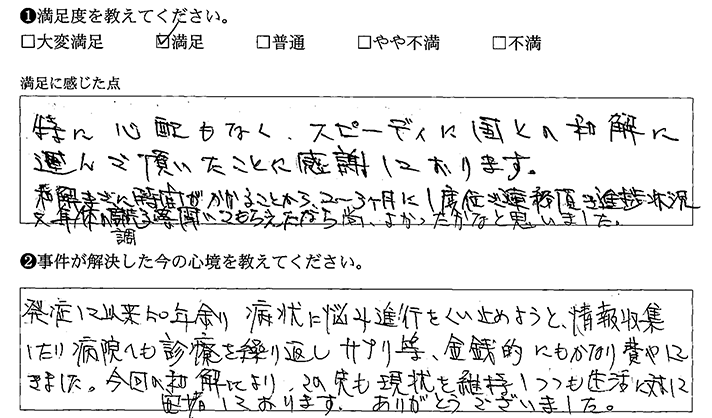 ❶満足度を教えてください。
□大変満足 ☑満足 □普通 □やや不満 □不満
満足に感じた点
特に心配もなく、スピーディに国との和解に
運んで頂いたことに感謝しております。
和解までに時間がかかることから、2〜3ヶ月に1度位ご連絡頂き進捗状況
体の調 等聞いてもらえたなら尚、よかったかなと思いました。
❷事件が解決した今の心境を教えてください。
発症して以来50年余り 病状に悩み進行をくい止めようと、情報収集
したり病院へも診療を繰り返しサプリ等、金銭的にもかなり費やして
きました。今回の和解により、この先も現状を維持しつつも生活に対して
しております。ありがとうございました。